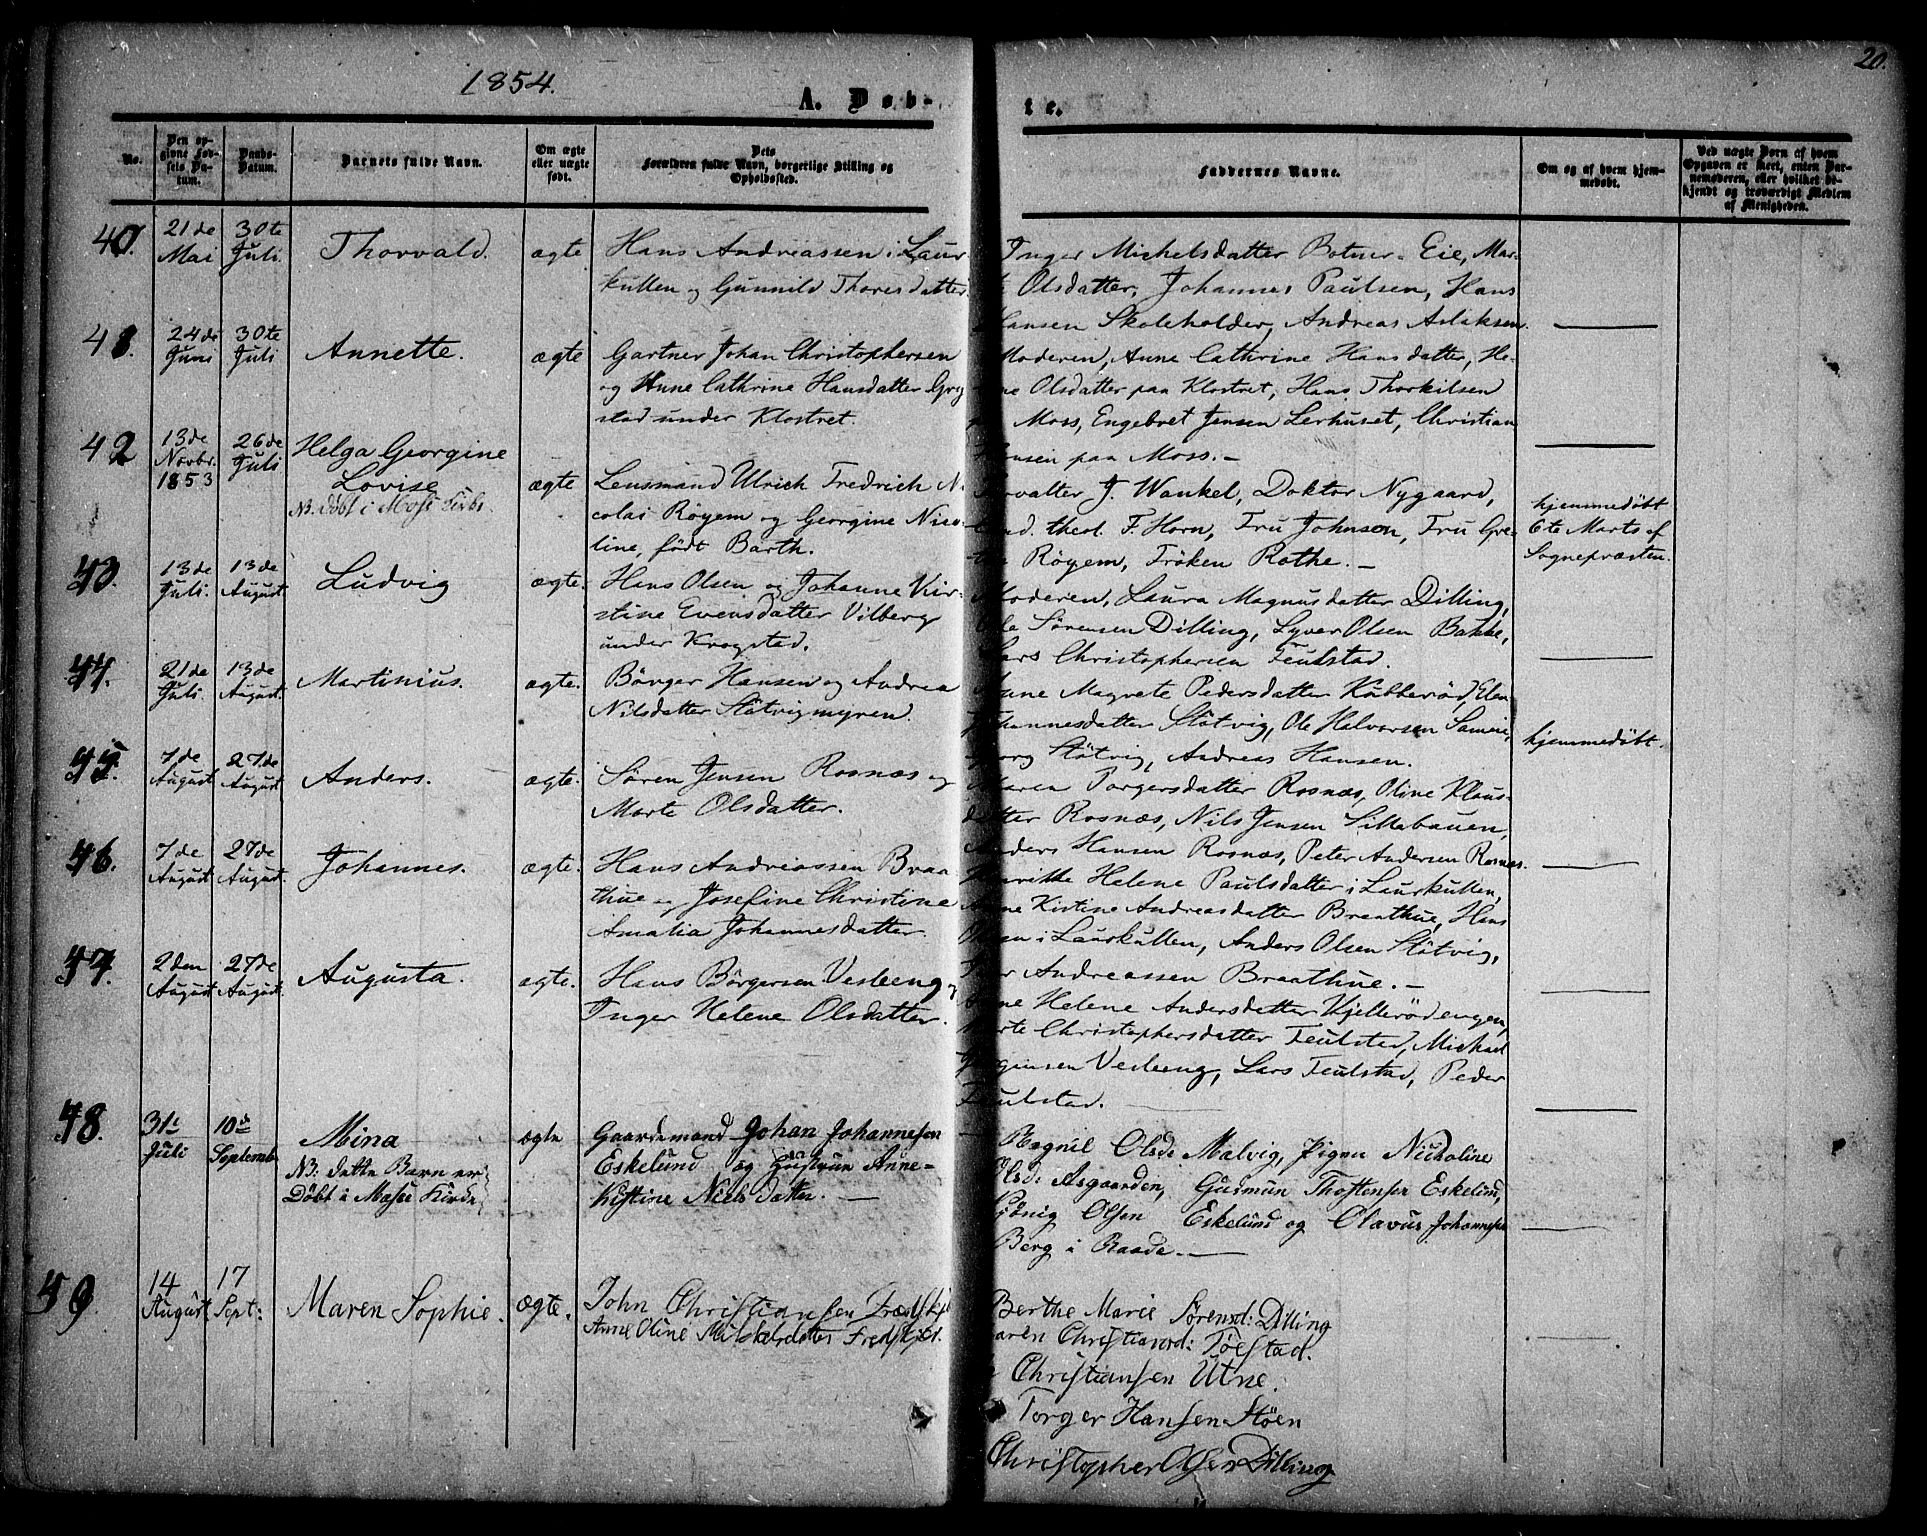 1854.
20.
A. Døb-
te.
No.
Den opgivne Fødsels Datum.
Daabs-Datum.
Barnets fulde Navn.
Om ægte eller uægte født.
Dets Forældres fulde Navn, borgerlige Stilling og Opholdssted.
Faddernes Navne.
Om og af hvem hjemmedøbt.
Ved uægte Børn af hvem Opgaven er skeet, enten Barnemoderen, eller hvilket bekjendt og troværdigt Medlem af Menigheden.
40. 21de Mai 30te Juli. Thorvald. ægte
Hans Andreassen i Laur-
kullen og Gunnild Thoresdatter.
Inger Michelsdatter Botner-Eie, Mar-
Olsdatter, Johannes Paulsen, Hans
Hansen Skoleholder, Andreas Aslaksen.
24de Juni 30te Juli Annette. ægte
Gartner Johan Christophersen
og Anne Cathrine Hansdatter Gry
stad under Klostret.
Moderen, Anne Cathrine Hansdatter, He-
ne Olsdatter paa Klostret, Hans Thorkilsen
Moss, Engebret Jensen Lerhuset, Christian
Hansen paa Moss.-
42 13de Novbr. 1853 26de Juli Helga Georgine
Lovise ægte
NB. døbt i Moss Kirke.
Lensmand Ulrich Fredrich N.
colai Røyem og Georgine Nico-
line, født Barth.
Forvalter J. Wankel, Doktor Nygaard,
Cand. theol. F. Horn, Fru Johnsen, Fru Gre-
Røyem, Frøken Rothe.-
hjemmedøbt
6te Marts af
Sognepræsten.
43. 13de Juli. 13de August. Ludvig ægte.
Hans Olsen og Johanne Kir-
stine Evensdatter Vilberg
under Krogstad.
Moderen, Laura Magnusdatter Dilling,
Ole Sørensen Dilling, Lyver Olsen Bakke,
Lars Christophersen Feulstad.
44. 21de Juli. 13de August. Martinius. ægte.
Børger Hansen og Andrea
Nilsdatter Støtvigmyren.
Anne Magrete Pedersdatter Kubberød, Elen
Johannesdatter Støtvig, Ole Halvorsen
Støtvig, Andreas Hansen.
hjemmedøbt.
45. 7de August 27de August Anders. ægte.
Søren Jensen Rosnæs og
Marte Olsdatter.
Maren Torgersdatter Rosnæs, Oline Klaus-
datter Rosnæs, Nils Jensen Sillebauen,
Anders Hansen Rosnæs, Peter Andersen Rosnæs.
46. 7de August 27de August. Johannes. ægte.
Hans Andreassen Braa-
thue og Josefine Christine
Amalia Johannesdatter.
Marithe Helene Paulsdatter i Laurkullen,
Anne Kistine Andreasdatter Braathue, Hans
Olsen i Laurkullen, Anders Olsen Støtvig,
Andreassen Braathue.-
47. 2den August 27de August. Augusta. ægte.
Hans Børgersen Vesleeng og
Inger Helene Olsdatter.
Anne Helene Andersdatter Kjellerødengen,
Marte Christophersdatter Feulstad, Michael
Jørgensen Vesleeng, Lars Feulstad, Peder
Feulstad.
48. 31 Juli 10 Septemb Mina ægte
NB: dette Barn er
Døbt i Mosse Kirke
Gaardemand Johan Johannesen
Eskelund og Hustrun Anne-
Kistine Nielsdatter.
Ragnil Olsd: Malvig, Pigen Nicholine
Olsd: Asgaarden, Gudmun Thostensen Eskelund,
Olsen Eskelund og Olavus Johannesen
Berg i Raade.
49 14 August. 17 Sept: Maren Sophie. ægte.
John Christiansen
Anne Oline
Berthe Marie Sørensd: Dilling
Karen Christiansd: Tøfstad.
Christiansen Utne.
Torger Hansen Støen
Christopher Olsen Dilling